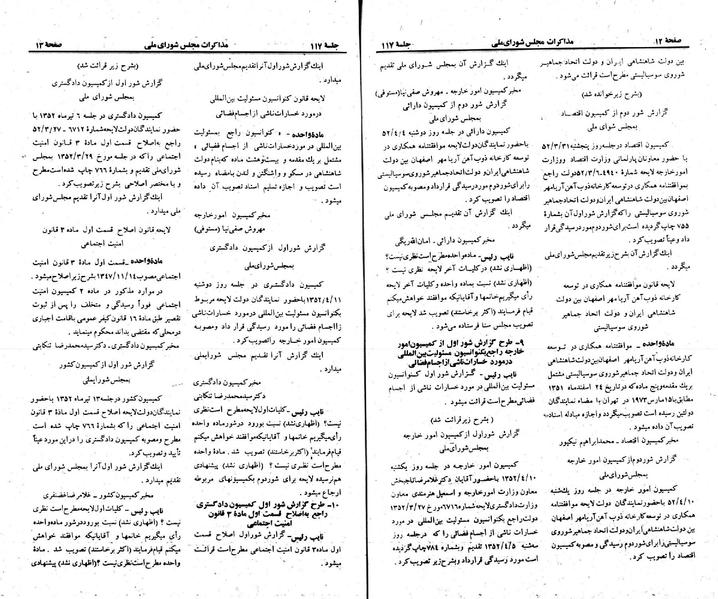 صفحهٔ ۱۲
مذاکرات مجلس شورای ملی
جلسهٔ ۱۱۷
بین دولت شاهنشاهی ایران و دولت اتحاد جماهیر
شوروی سوسیالیستی مطرح است قرائت میشود.
(بشرح زیر خوانده شد)
گزارش شور دوم از کمیسیون اقتصاد
بمجلس شورای ملی
کمیسیون اقتصاد در جلسه روز پنجشنبه ۵۲/۳/۳۱
با حضور معاونان پارلمانی وزارت اقتصاد و وزارت
امور خارجه لایحه شمارهٔ ۴۹۴۰-۵۲/۳/۶ دولت راجع
بموافقتنامه همکاری در توسعه کارخانه ذوب آهن آریامهر
اصفهان بین دولت شاهنشاهی ایران و دولت اتحاد جماهیر
شوروی سوسیالیستی را که گزارش شور اول آن بشمارهٔ
۷۵۵ چاپ گردیده است برای شور دوم مورد رسیدگی قرار
داد و عیناً تصویب کرد.
اینک گزارش آن بشرح زیر تقدیم مجلس شورای ملی
میگردد.
لایحه قانون موافقتنامه همکاری در توسعه
کارخانه ذوب آهن آریا مهر اصفهان بین دولت
شاهنشاهی ایران و دولت اتحاد جماهیر
شوروی سوسیالیستی
مادهٔ واحده - موافقتنامه همکاری در توسعه
کارخانه ذوب آهن آریامهر اصفهان بین دولت شاهنشاهی
ایران و دولت اتحاد جماهیر شوروی سوسیالیستی مشتمل
بر یک مقدمه و پنج ماده که در تاریخ ۲۴ اسفندماه ۱۳۵۱
مطابق با ۱۵ مارس ۱۹۷۳ در تهران با مضاء نمایندگان
دولتین رسیده است تصویب و اجازه مبادله اسناد
داده میشود.
مخبر کمیسیون اقتصاد - محمدابراهیم نیکپور
گزارش شور دوم از کمیسیون امور خارجه
بمجلس شورای ملی
کمیسیون امور خارجه در جلسه روز یکشنبه
۵۲/۴/۱۰ با حضور نمایندگان دولت لایحه موافقتنامه
همکاری در توسعه کارخانه ذوب آهن آریامهر اصفهان
بین دولت شاهنشاهی ایران و دولت اتحاد جماهیر شوروی
سوسیالیستی را برای شور دوم رسیدگی و مصوبه کمیسیون
اقتصاد را تصویب کرد.
اینک گزارش آن بمجلس شورای ملی تقدیم
میگردد.
مخبر کمیسیون امور خارجه - مهروش صفی‌نیا (مستوفی)
گزارش شور دوم از کمیسیون دارائی
بمجلس شورای ملی
کمیسیون دارائی در جلسه روز دوشنبه ۵۲/۴/۴
با حضور نمایندگان دولت لایحه موافقتنامه همکاری در
توسعه کارخانه ذوب آهن آریا مهر اصفهان بین دولت
شاهنشاهی ایران و دولت اتحاد جماهیر شوروی سوسیالیستی
را برای شور دوم مورد رسیدگی قرار داد و مصوبه کمیسیون
اقتصاد را تصویب کرد.
اینک گزارش آن تقدیم مجلس شورای ملی
میگردد.
مخبر کمیسیون دارائی - امان‌الله ریگی
نایب رئیس - ماده واحده مطرح است نظری نیست؟
(اظهاری نشد) در کلیات آخر لایحه نظری نیست؟
(اظهاری نشد) نسبت بماده واحده و کلیات آخر لایحه
رأی میگیریم خانمها و آقایانیکه موافقند خواهش میکنم
قیام فرمایند (اکثر برخاستند) تصویب شد لایحه برای
تصویب مجلس سنا فرستاده میشود.
۹- طرح گزارش شور اول از کمیسیون امور
خارجه راجع بکنوانسیون مسئولیت بین‌المللی
در مورد خسارات ناشی از اجسام فضائی
نایب رئیس - گزارش شور اول کنوانسیون
مسئولیت بین‌المللی در مورد خسارات ناشی از اجسام
فضائی مطرح است قرائت میشود.
(بشرح زیر قرائت شد)
گزارش شور اول از کمیسیون امور خارجه
بمجلس شورای ملی
کمیسیون امور خارجه در جلسه روز یکشنبه
۱۳۵۲/۴/۱۰ با حضور آقایان دکتر غلامرضا تاجبخش
معاون وزارت امور خارجه و اسمعیل هنرمندی معاون
وزارت دادگستری لایحه شماره ۶۷۱۶-۵۲/۳/۲۷
دولت راجع بکنوانسیون مسئولیت بین‌المللی در مورد
خسارات ناشی از اجسام فضائی را که در جلسه روز
سه‌شنبه ۱۳۵۲/۴/۵ تقدیم و بشماره ۷۸۴ چاپ گردیده
است مورد رسیدگی قرار داد و بشرح زیر تصویب کرد.
جلسهٔ ۱۱۷
مذاکرات مجلس شورای ملی
صفحهٔ ۱۳
اینک گزارش شور اول آنرا تقدیم مجلس شورای ملی
میدارد.
لایحه قانون کنوانسیون مسئولیت بین‌المللی
در مورد خسارات ناشی از اجسام فضائی
مادهٔ واحده - کنوانسیون راجع بمسئولیت
بین‌المللی در مورد خسارات ناشی از اجسام فضائی
مشتمل بر یک مقدمه و بیست و هشت ماده که بنام دولت
شاهنشاهی در مسکو و واشنگتن و لندن بامضاء رسیده
است تصویب و اجازه تسلیم اسناد تصویب آن داده
میشود.
مخبر کمیسیون امور خارجه
مهروش صفی‌نیا (مستوفی)
گزارش شور اول از کمیسیون دادگستری
بمجلس شورای ملی
کمیسیون دادگستری در جلسه روز دوشنبه
۱۳۵۲/۴/۱۱ با حضور نمایندگان دولت لایحه مربوط
بکنوانسیون مسئولیت بین‌المللی در مورد خسارات ناشی
از اجسام فضائی را مورد رسیدگی قرار داد و مصوبه
کمیسیون امور خارجه را تصویب کرد.
اینک گزارش شور اول آنرا تقدیم مجلس شورای ملی
میدارد.
مخبر کمیسیون دادگستری
دکتر سیدمحمدرضا تنکابنی
نایب رئیس - کلیات اول لایحه مطرح است نظری
نیست؟ (اظهاری نشد) نسبت بورود در شور ماده واحده
رأی میگیریم خانمها و آقایانیکه موافقند خواهش میکنم
قیام فرمایند (اکثر برخاستند) تصویب شد. ماده واحده
مطرح است نظری نیست؟ (اظهاری نشد) پیشنهادی
هم نرسیده لایحه برای شور دوم بکمیسیونهای مربوطه
ارجاع میشود.
۱۰- طرح گزارش شور اول کمیسیون دادگستری
راجع به اصلاح قسمت اول مادهٔ ۳ قانون
امنیت اجتماعی
نایب رئیس - گزارش شور اول اصلاح قسمت
اول ماده ۳ قانون امنیت اجتماعی مطرح است قرائت
میشود.
(بشرح زیر قرائت شد)
گزارش شور اول از کمیسیون دادگستری
بمجلس شورای ملی
کمیسیون دادگستری در جلسه ۶ تیرماه ۱۳۵۲ با
حضور نمایندگان دولت لایحه شمارهٔ ۶۷۱۲ - ۵۲/۳/۲۷
راجع به اصلاح قسمت اول مادهٔ ۳ قانون امنیت
اجتماعی را که در جلسه مورخ ۱۳۵۲/۳/۲۹ بمجلس
شورای ملی تقدیم و بشمارهٔ ۷۶۶ چاپ شده است مطرح
و با مختصر اصلاحی بشرح زیر تصویب کرد.
اینک گزارش شور اول آنرا تقدیم مجلس شورای
ملی میدارد.
لایحه قانون اصلاح قسمت اول مادهٔ ۳ قانون
امنیت اجتماعی
مادهٔ واحده - قسمت اول مادهٔ ۳ قانون امنیت
اجتماعی مصوب ۱۳۴۷/۱۱/۱۴ بشرح زیر اصلاح میشود.
در موارد مذکور در ماده ۲ کمیسیون امنیت
اجتماعی فوراً رسیدگی و متخلف را پس از ثبوت
تقصیر طبق ماده ۱۶ قانون کیفر عمومی باقامت اجباری
در محلی که مقتضی بداند محکوم مینماید.
مخبر کمیسیون دادگستری - دکتر سیدمحمدرضا تنکابنی
گزارش شور اول از کمیسیون کشور
بمجلس شورای ملی
کمیسیون کشور در جلسه ۱۳ تیرماه ۱۳۵۲ با حضور
نمایندگان دولت لایحه اصلاح قسمت اول مادهٔ ۳ قانون
امنیت اجتماعی را که بشمارهٔ ۷۶۶ چاپ شده است
مطرح و مصوبه کمیسیون دادگستری را در این مورد عیناً
تأیید و تصویب کرد.
اینک گزارش شور اول آنرا بمجلس شورای ملی
تقدیم میدارد.
مخبر کمیسیون کشور - غلامرضا غضنفری
نایب رئیس - کلیات اول لایحه مطرح است نظری
نیست؟ (اظهاری نشد) نسبت بورود در شور ماده واحده
رأی میگیریم خانمها و آقایانیکه موافقند خواهش
میکنم قیام فرمایند (اکثر برخاستند) تصویب شد. مادهٔ
واحده مطرح است نظری نیست؟ (اظهاری نشد) پیشنهادی